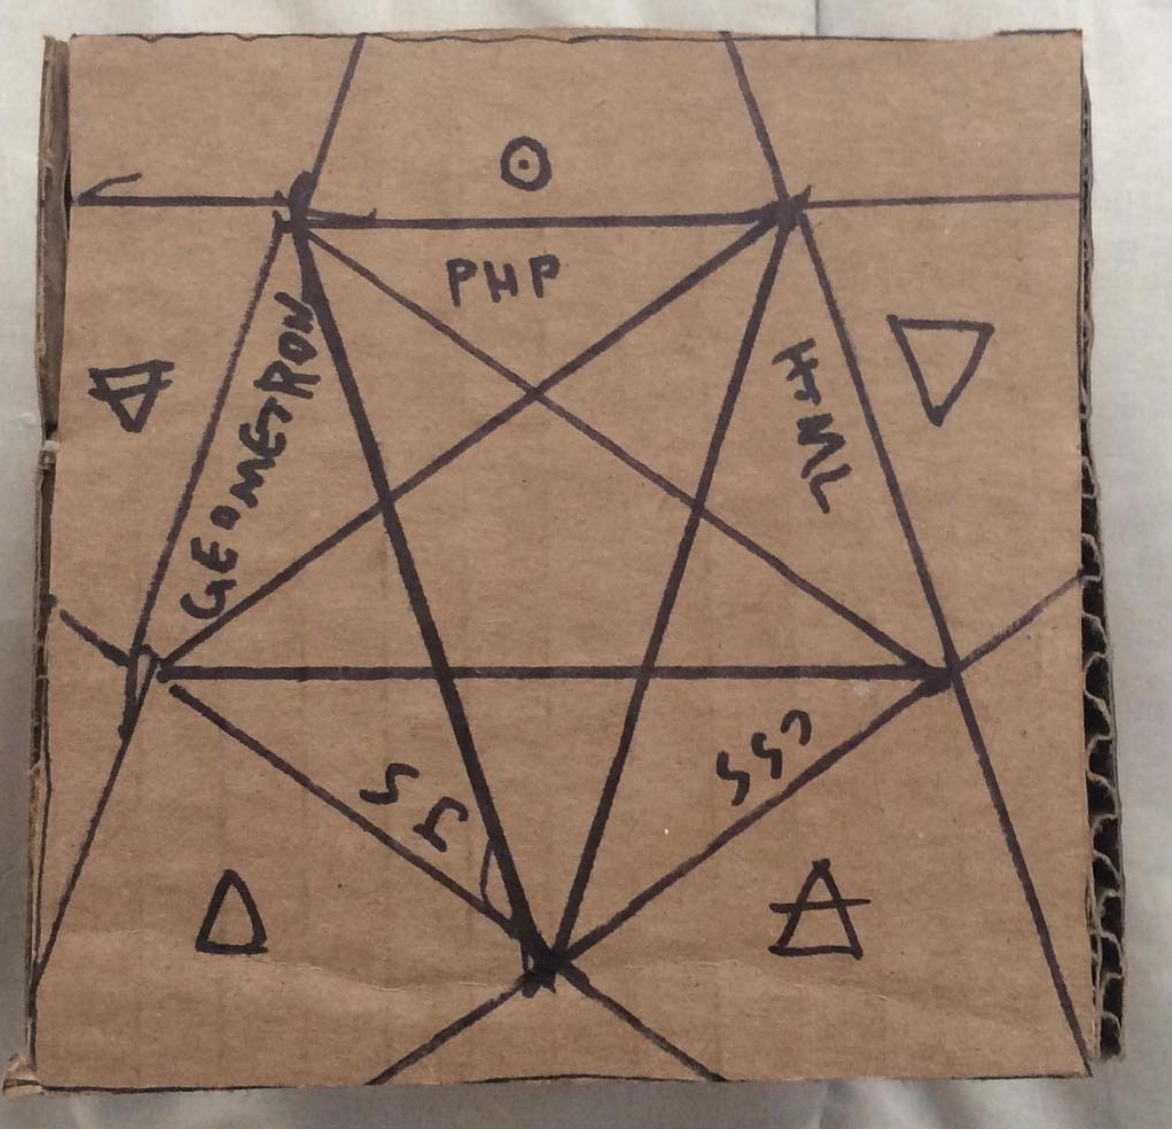 PHP
GEOMETRON
HTML
JS
CSS